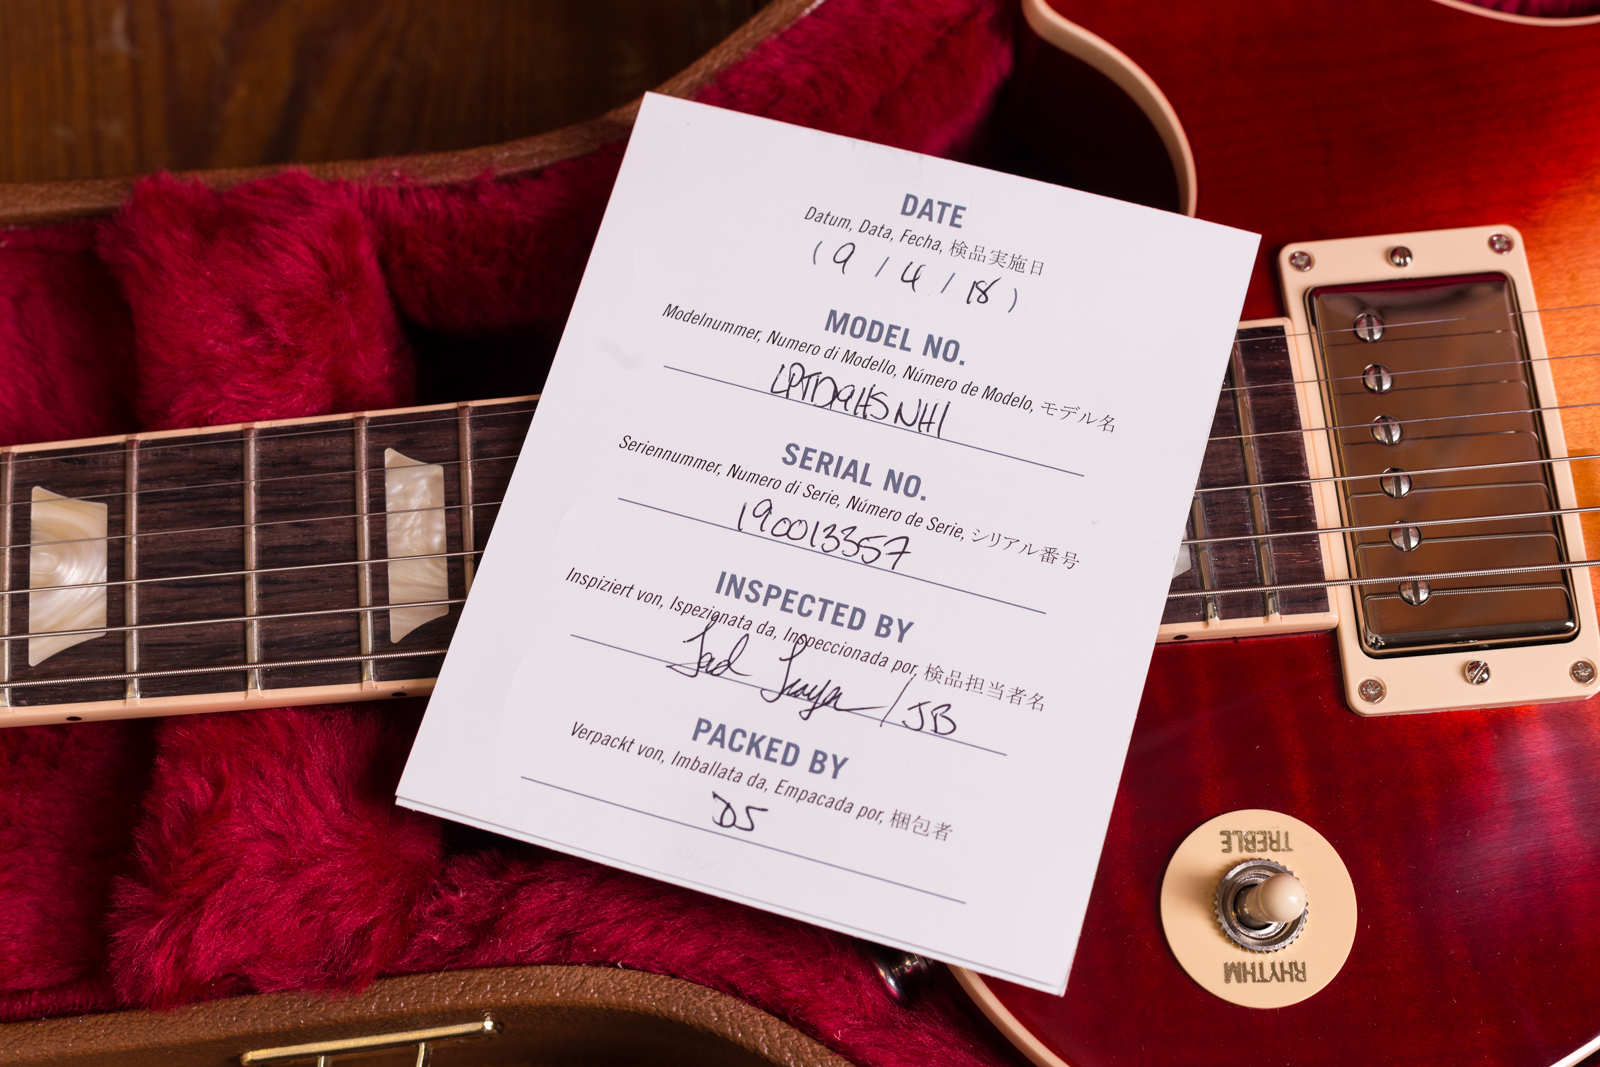 DATE
Datum, Data, Fecha, 検品実施日
( 9 / 4 / 18 )
MODEL NO.
Modelnummer, Numero di Modello, Número de Modelo, モデル名
LPTD9HSNH1
SERIAL NO.
Seriennummer, Numero di Serie, Número de Serie, シリアル番号
190013357
INSPECTED BY
Inspiziert von, Ispezionata da, Inspeccionada por, 検品担当者名
/ JB
PACKED BY
Verpackt von, Imballata da, Empacada por, 梱包者
DS
TREBLE
RHYTHM